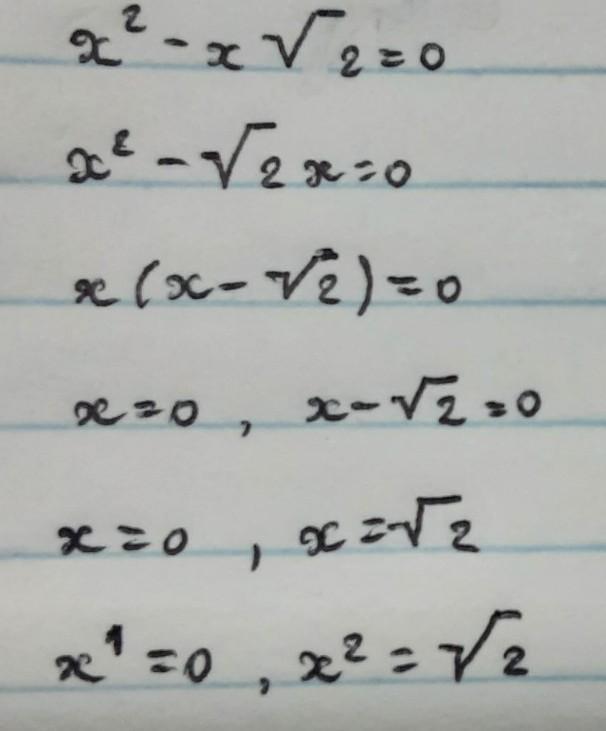 x² - x√2 = 0
x² - √2 x = 0
x(x - √2) = 0
x = 0 , x - √2 = 0
x = 0 , x = √2
x¹ = 0 , x² = √2